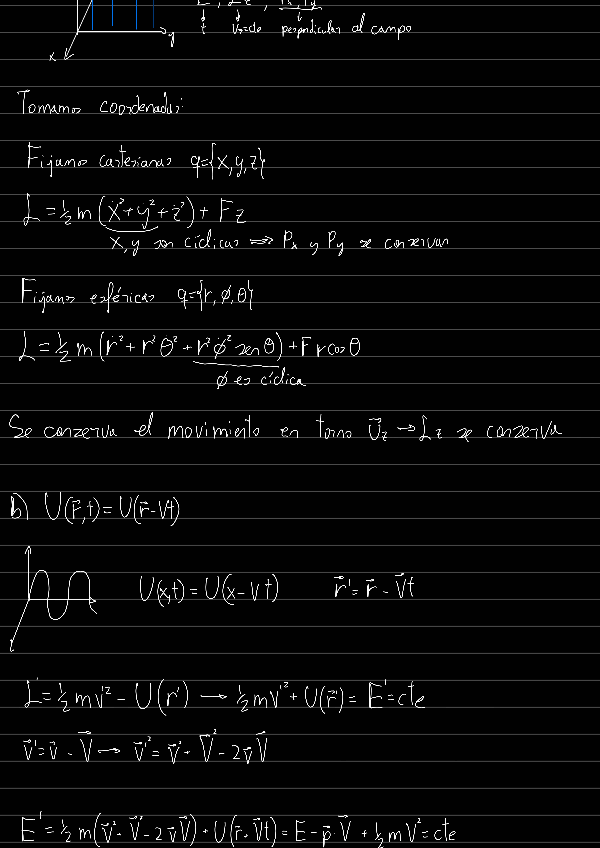 t Vz=cte perpendicular al campo
x y
Tomamos coordenadas:
Fijamos cartesianas q={x,y,z}
L=½m(ẋ²+ẏ²+ż²)+Fz
x,y son cíclicas ⇒ Px y Py se conservan
Fijamos esféricas q={r,φ,θ}
L=½m(ṙ²+r²θ̇²+r²φ̇²senθ)+Frcosθ
φ es cíclica
Se conserva el movimiento en torno U⃗z → Lz se conserva
b) U(r⃗,t)=U(r⃗-Vt)
U(x,t)=U(x-Vt) r⃗'=r⃗-V⃗t
L'=½mv'²-U(r') → ½mv'²+U(r⃗')=E'=cte
v⃗'=v⃗-V⃗ → v⃗'²=v⃗²+V⃗²-2v⃗V⃗
E'=½m(v⃗²+V⃗²-2v⃗V⃗)+U(r⃗-V⃗t)=E-p⃗·V⃗+½mV²=cte